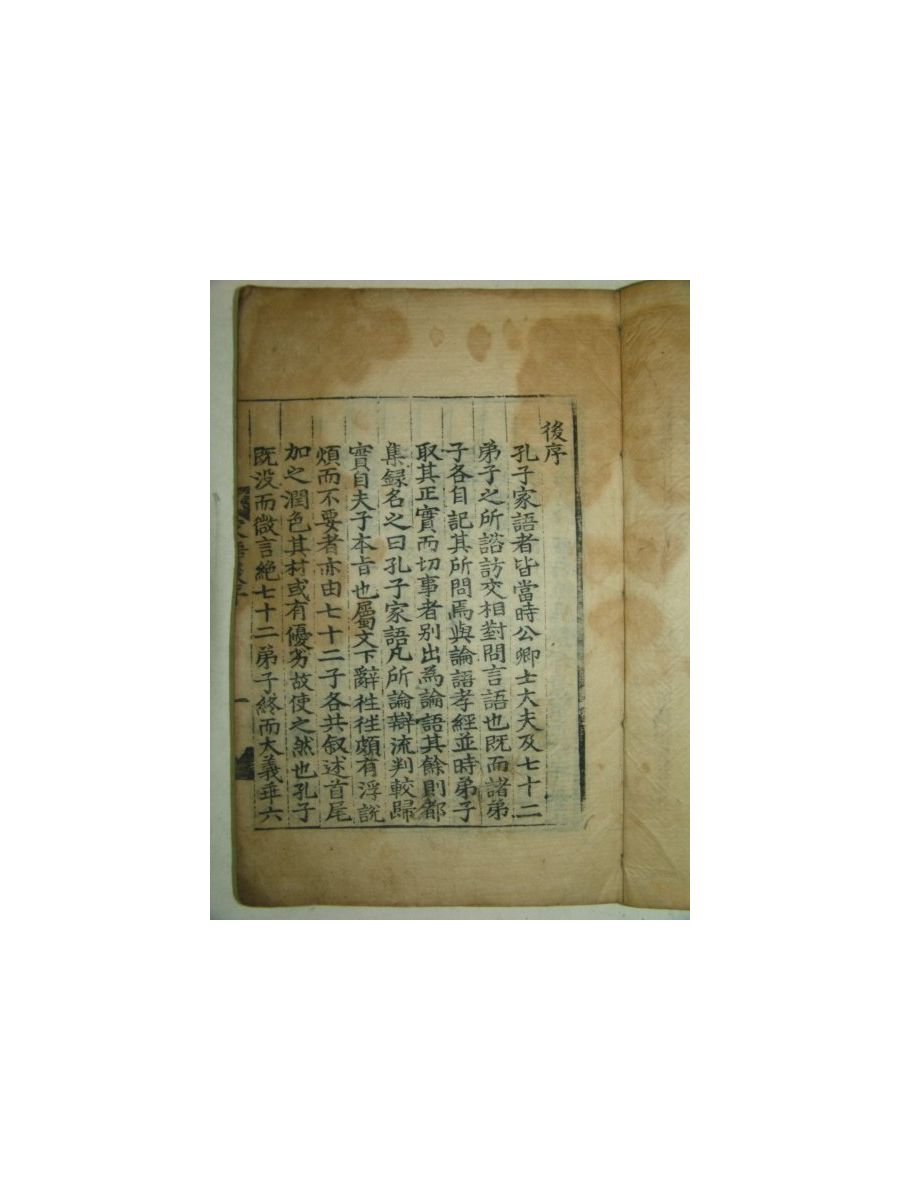 後序
孔子家語者皆當時公卿士大夫及七十二
弟子之所諮訪交相對問言語也既而諸弟
子各自記其所問焉與論語孝經並時弟子
取其正實而切事者别出為論語其餘則都
集録名之曰孔子家語凡所論辯流判較歸
實自夫子本旨也屬文下辭往往頗有浮説
煩而不要者亦由七十二子各共叙述首尾
加之潤色其材或有優劣故使之然也孔子
既没而微言絶七十二弟子終而大義乖六